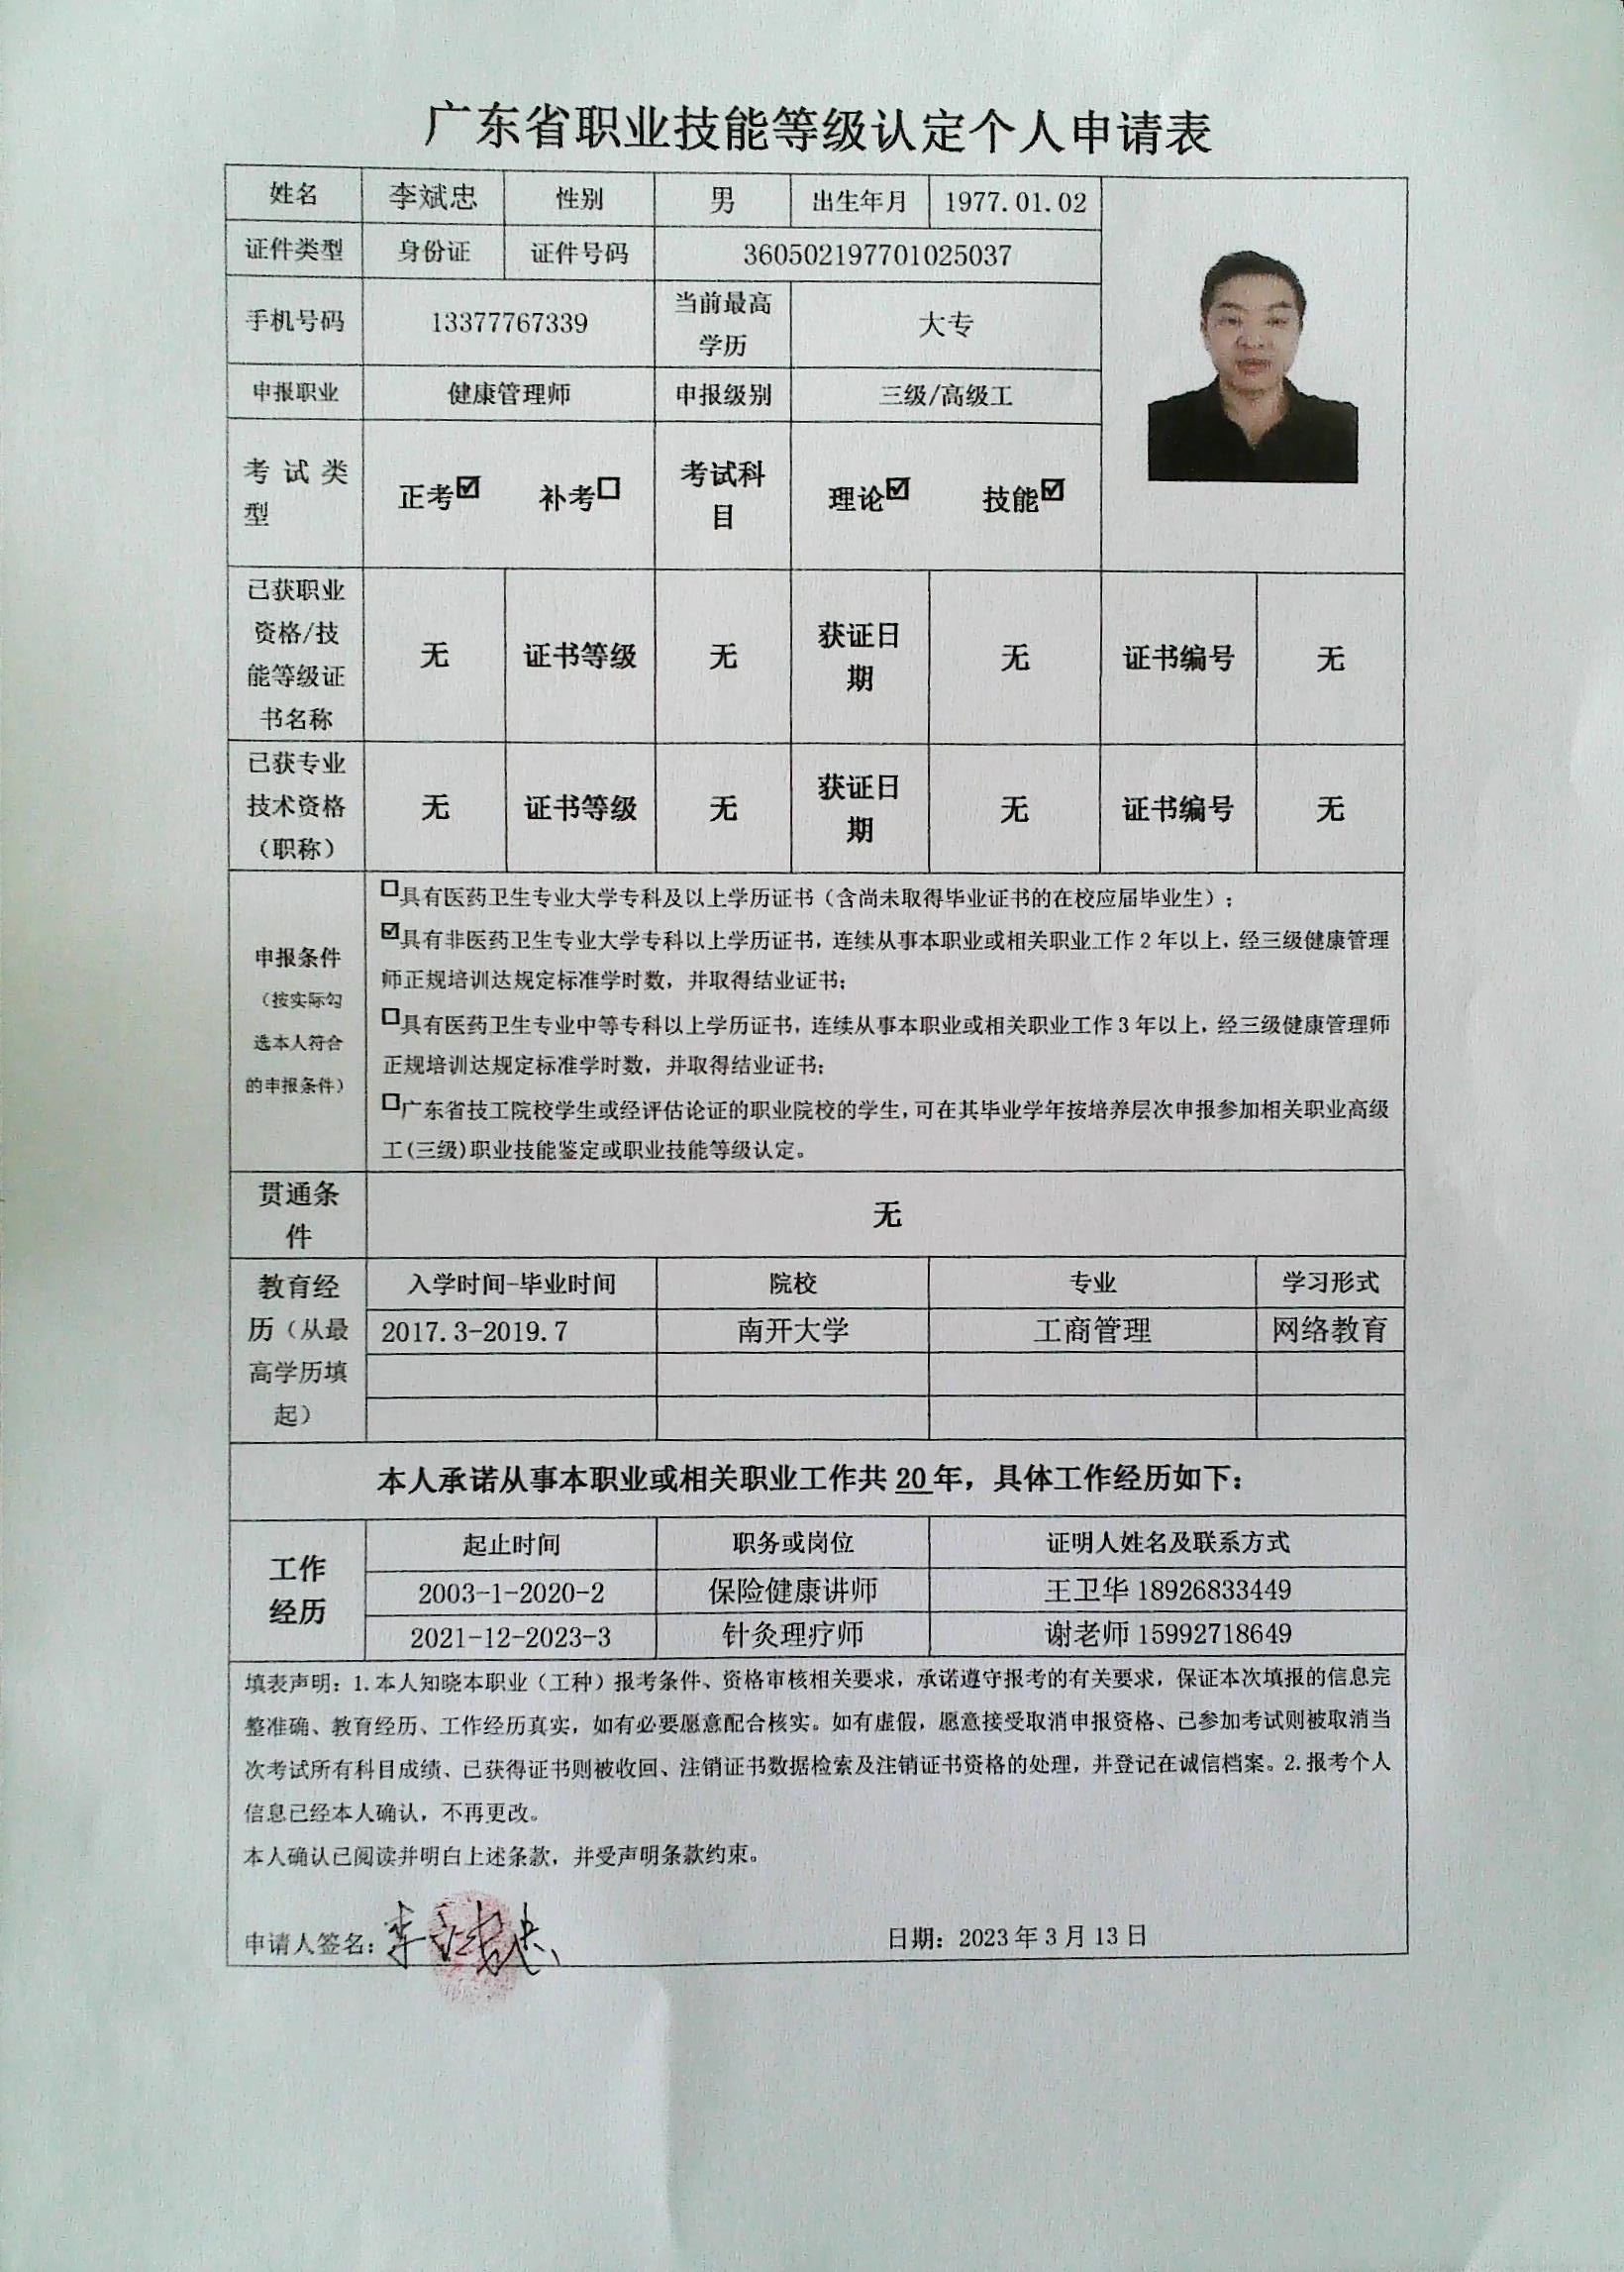 广东省职业技能等级认定个人申请表
姓名 李斌忠 性别 男 出生年月 1977.01.02
证件类型 身份证 证件号码 360502197701025037
手机号码 13377767339 当前最高学历 大专
申报职业 健康管理师 申报级别 三级/高级工
考试类型 正考☑ 补考☐ 考试科目 理论☑ 技能☑
已获职业资格/技能等级证书名称 无 证书等级 无 获证日期 无 证书编号 无
已获专业技术资格（职称） 无 证书等级 无 获证日期 无 证书编号 无
申报条件（按实际勾选本人符合的申报条件）
☐具有医药卫生专业大学专科及以上学历证书（含尚未取得毕业证书的在校应届毕业生）；
☑具有非医药卫生专业大学专科以上学历证书，连续从事本职业或相关职业工作2年以上，经三级健康管理
师正规培训达规定标准学时数，并取得结业证书；
☐具有医药卫生专业中等专科以上学历证书，连续从事本职业或相关职业工作3年以上，经三级健康管理师
正规培训达规定标准学时数，并取得结业证书；
☐广东省技工院校学生或经评估论证的职业院校的学生，可在其毕业学年按培养层次申报参加相关职业高级
工(三级)职业技能鉴定或职业技能等级认定。
贯通条件 无
教育经历（从最高学历填起） 入学时间-毕业时间 院校 专业 学习形式
2017.3-2019.7 南开大学 工商管理 网络教育
本人承诺从事本职业或相关职业工作共 20 年，具体工作经历如下：
工作经历 起止时间 职务或岗位 证明人姓名及联系方式
2003-1-2020-2 保险健康讲师 王卫华 18926833449
2021-12-2023-3 针灸理疗师 谢老师 15992718649
填表声明：1.本人知晓本职业（工种）报考条件、资格审核相关要求，承诺遵守报考的有关要求，保证本次填报的信息完
整准确、教育经历、工作经历真实，如有必要愿意配合核实。如有虚假，愿意接受取消申报资格、已参加考试则被取消当
次考试所有科目成绩、已获得证书则被收回、注销证书数据检索及注销证书资格的处理，并登记在诚信档案。2.报考个人
信息已经本人确认，不再更改。
本人确认已阅读并明白上述条款，并受声明条款约束。
申请人签名：李斌忠 日期：2023年3月13日